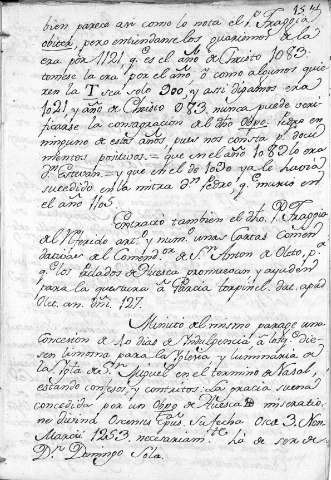 bien parece asi como lo nota el P. Traggia
obiter, pero entiendanse los guarismos de la
era por 1121, q.e es el año de Christo 1083.
tomese la era por el año, ò como algunos quie
ren la T sea solo 900, y assi digamos era
1021 y año de Christo 983, nunca puede veri
ficarse la consagracion al dho Obpo. Pedro en
ninguno de estos años, pues nos consta p.r docu
mentos positivos = que en el año 1089 lo era
D.n Estevan = y que en el de 1090 ya le havia
sucedido en la mitra D.n Pedro q.e murio en
el año 1105.
Contraxo tambien el dho. P. Traggia
del referido art.o y num.o unas Cartas Comen
daticias del Comend.or de S.n Anton de Olite, p.a
q.e los Prelados de Huesca promuevan y ayuden
para la questura a Garcia torpinel. dat. apud
Osce an. Dñi. 127.
Minuto del mismo parage una
Concesion de 40 dias de Indulgencia à los q.e die
sen limosna para la Iglesia y luminaria de
la Igla de S.n Miguel en el termino de Vasal,
estando confesos, y contritos. La gracia suena
concedida por un Obpo de Huesca miseratio
ne divina Oscensis Epus. Su fecha Osce 3. Non.
Marcii 1253. necesariam.te hà de ser de
D.n Domingo Sola.